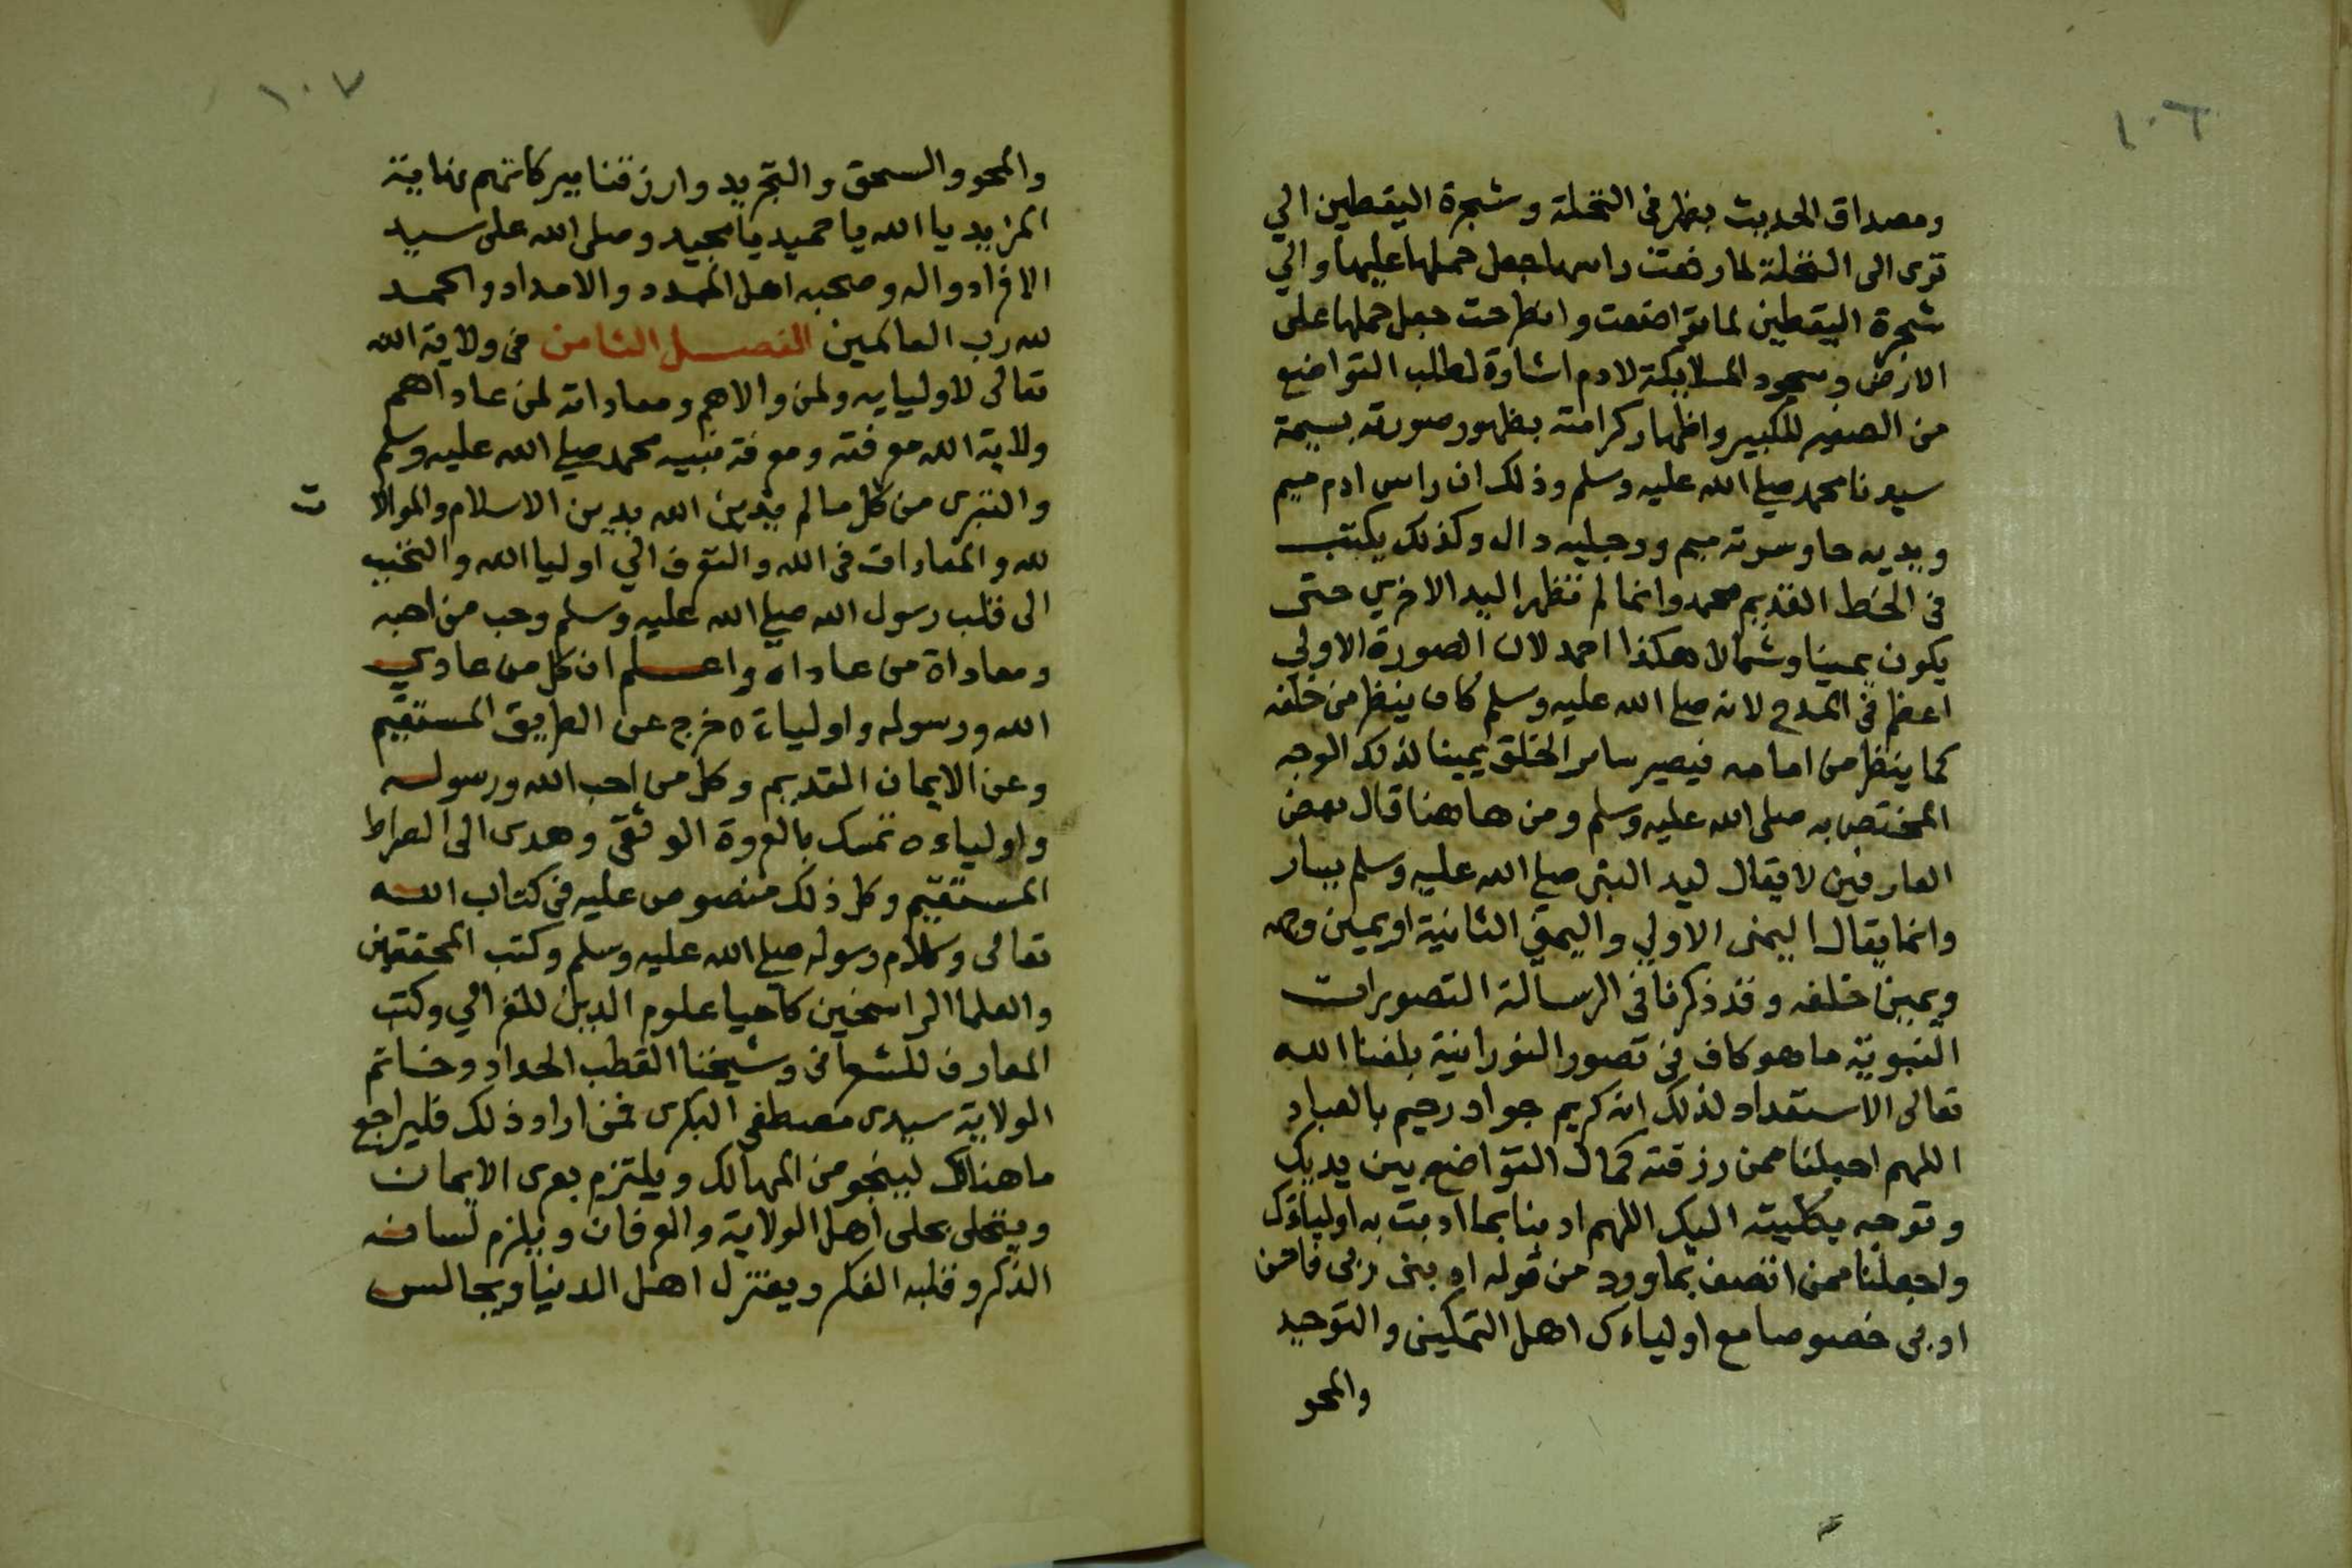 ١٠٦
ومصداق الحديث يظهر في النخلة وشجرة اليقطين الي
ترى الى النخلة لما رفعت راسها جعل حملها عليها والي
شجرة اليقطين لما تواضعت وانطرحت جعل حملها على
الارض وسجود الملايكة لادم اشارة لطلب التواضع
من الصغير للكبير واظهار كرامته بظهور صورته بسيمة
سيدنا محمد صلى الله عليه وسلم وذلك ان راس ادم ميم
ويديه حا وسرته ميم ورجليه دال وكذلك يكتب
في الخط القديم محمد وانما لم تظهر اليد الاخري حتى
يكون يمينا وشمالا هكذا احمد لان الصورة الاولي
اعظم في المدح لانه صلى الله عليه وسلم كان ينظر من خلفه
كما ينظر من امامه فيصير ساير الخلق يمينا لذلك الوجه
المختص به صلى الله عليه وسلم ومن هاهنا قال بعض
العارفين لا يقال ليد النبي صلى الله عليه وسلم يسار
وانما يقال اليمنى الاولي واليمنى الثانية او يمين وجهه
ويمين خلفه وقد ذكرنا في الرسالة التصويرات
النبوية ما هو كاف في تصور النورانية بلغنا الله
تعالى الاستعداد لذلك انه كريم جواد رحيم بالعباد
اللهم اجعلنا ممن رزقته كمال التواضع بين يديك
وتوجه بكليته اليك اللهم ادبنا بما ادبت به اولياءك
واجعلنا ممن اتصف بما ورد من قوله ادبني ربي فاحسن
ادبي خصوصا مع اولياءك اهل التمكين والتوحيد
والمحو
١٠٧
والمحو والسحق والتجريد وارزقنا ببركاتهم نهاية
المزيد يا الله يا حميد يا مجيد وصلى الله على سيد
الافراد واله وصحبه اهل المدد والامداد والحمد
لله رب العالمين الفصل الثامن في ولاية الله
تعالى لاوليايه ولمن والاهم ومعاداته لمن عاداهم
ولاية الله معرفته ومعرفة نبيه محمد صلى الله عليه وسلم
والتبري من كل ما لم يدين الله بدين الاسلام والموالات
لله والمعادات في الله والتعرف الي اوليا الله والتحبب
الى قلب رسول الله صلى الله عليه وسلم وحب من احبه
ومعاداة من عاداه واعلم ان كل من عادي
الله ورسوله واولياءه خرج عن الطريق المستقيم
وعن الايمان القديم وكل من احب الله ورسوله
واولياءه تمسك بالعروة الوثقى وهدى الى الصراط
المستقيم وكل ذلك منصوص عليه في كتاب الله
تعالى وكلام رسوله صلى الله عليه وسلم وكتب المحققين
والعلما الراسخين كاحيا علوم الدين للغزالي وكتب
المعارف للشعراني وشيخنا القطب الحداد وخاتم
الولاية سيدى مصطفى البكرى فمن اراد ذلك فليراجع
ما هناك لينجو من المهالك ويلتزم بعرى الايمان
ويتحلى بحلى اهل الولاية والعرفان ويلزم لسانه
الذكر وقلبه الفكر ويعتزل اهل الدنيا ويجالس